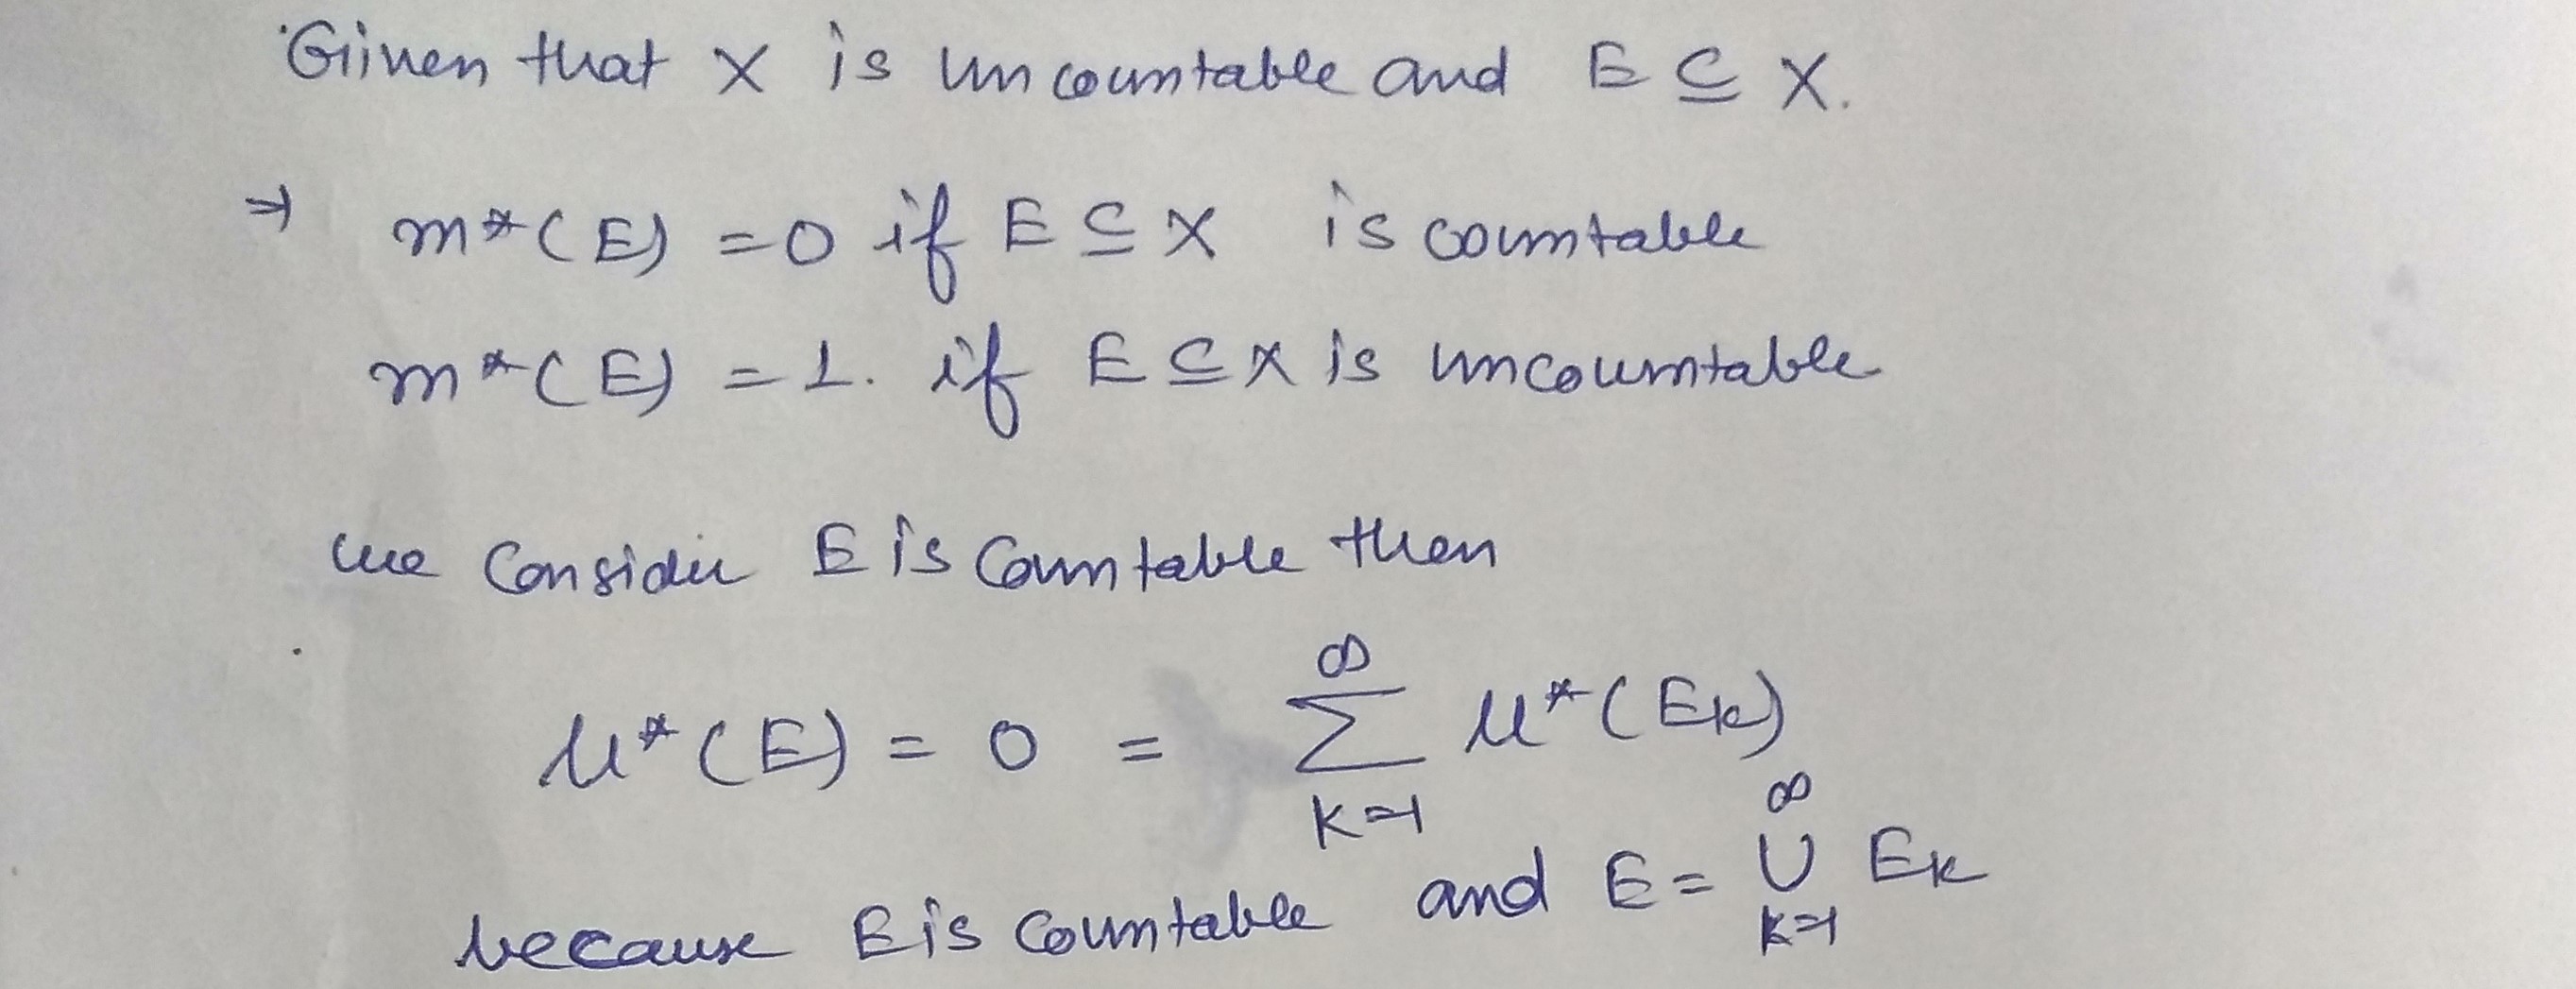 Given that X is uncountable and E ⊆ X.
⇒ m*(E) = 0 if E ⊆ X is countable
m*(E) = 1. if E ⊆ X is uncountable
we Consider E is Countable then
μ*(E) = 0 = ∑_{k=1}^{∞} μ*(E_k)
because E is Countable and E = ⋃_{k=1}^{∞} E_k